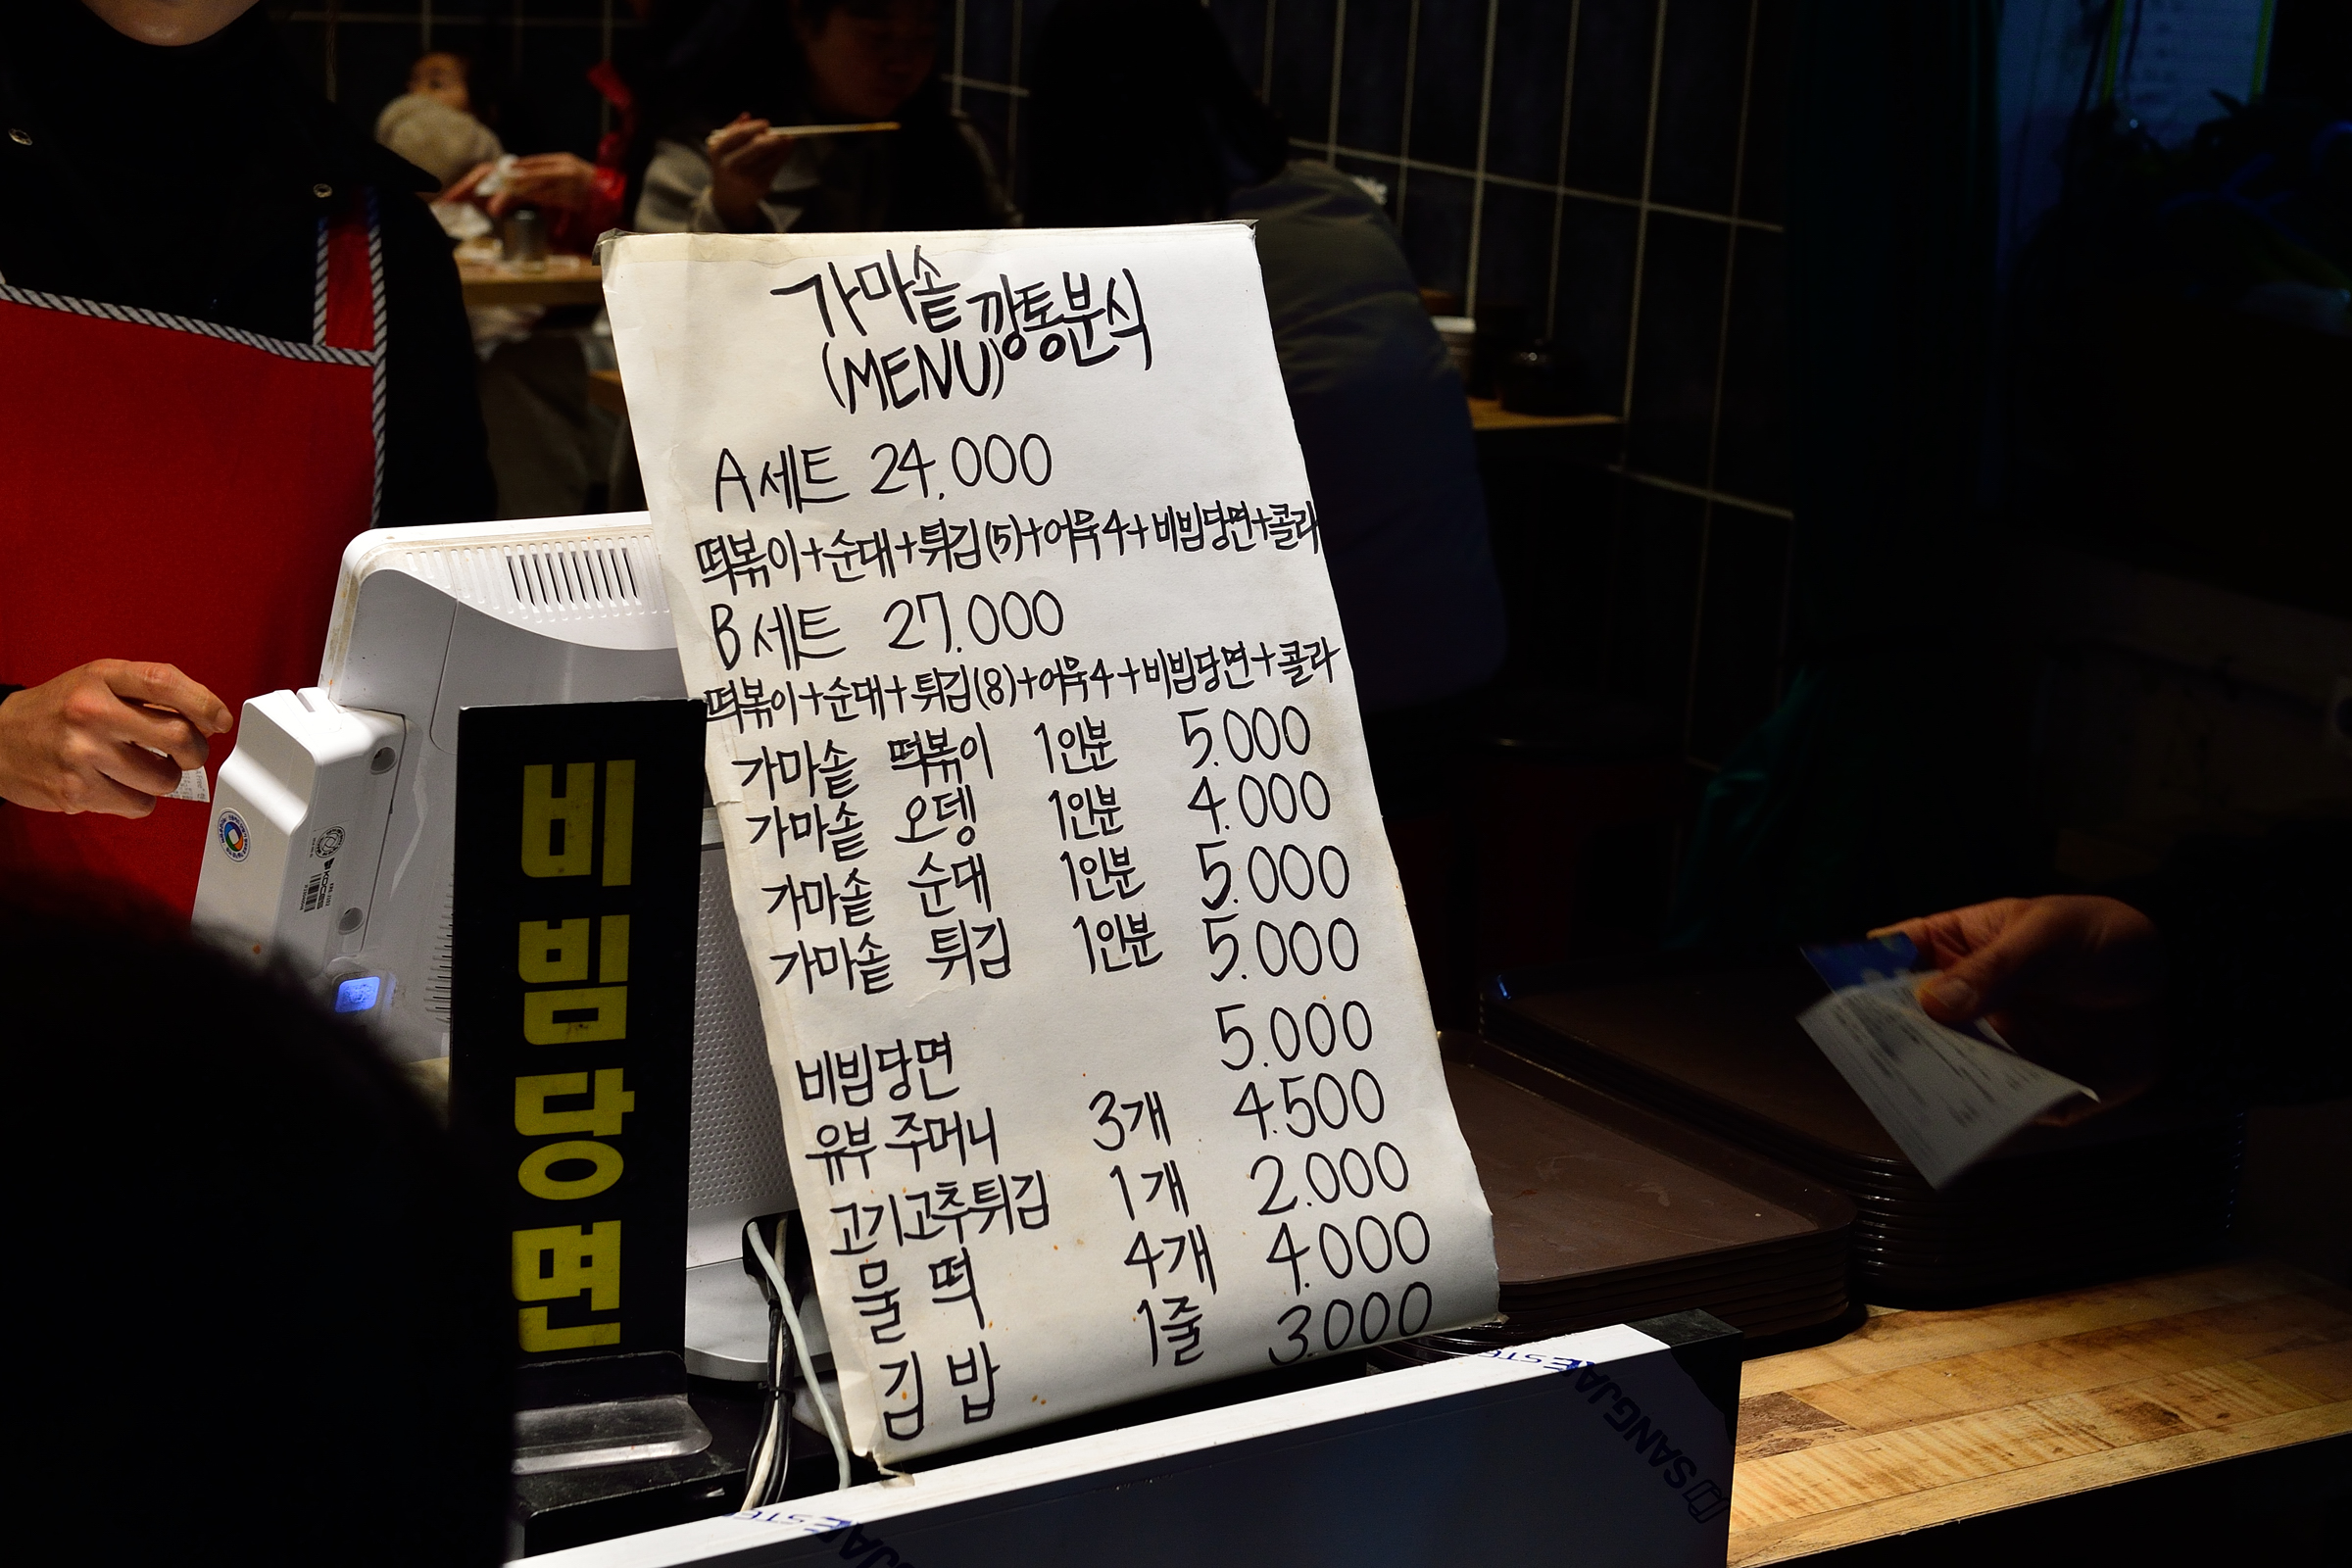 가마솥 깡통분식
(MENU)
A 세트 24.000
떡볶이+순대+튀김(5)+어묵4+비빔당면+콜라
B 세트 27.000
떡볶이+순대+튀김(8)+어묵4+비빔당면+콜라
가마솥 떡볶이 1인분 5.000
가마솥 오뎅 1인분 4.000
가마솥 순대 1인분 5.000
가마솥 튀김 1인분 5.000
비빔당면 5.000
유부 주머니 3개 4.500
고기고추튀김 1개 2.000
물 떡 4개 4.000
김 밥 1줄 3.000
비빔당면
SANGJAE